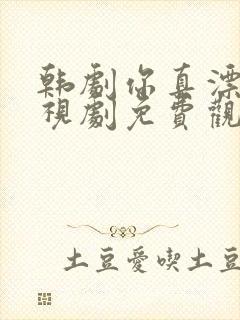 韩劇你真漂
視劇免費觀
土豆愛喫土豆